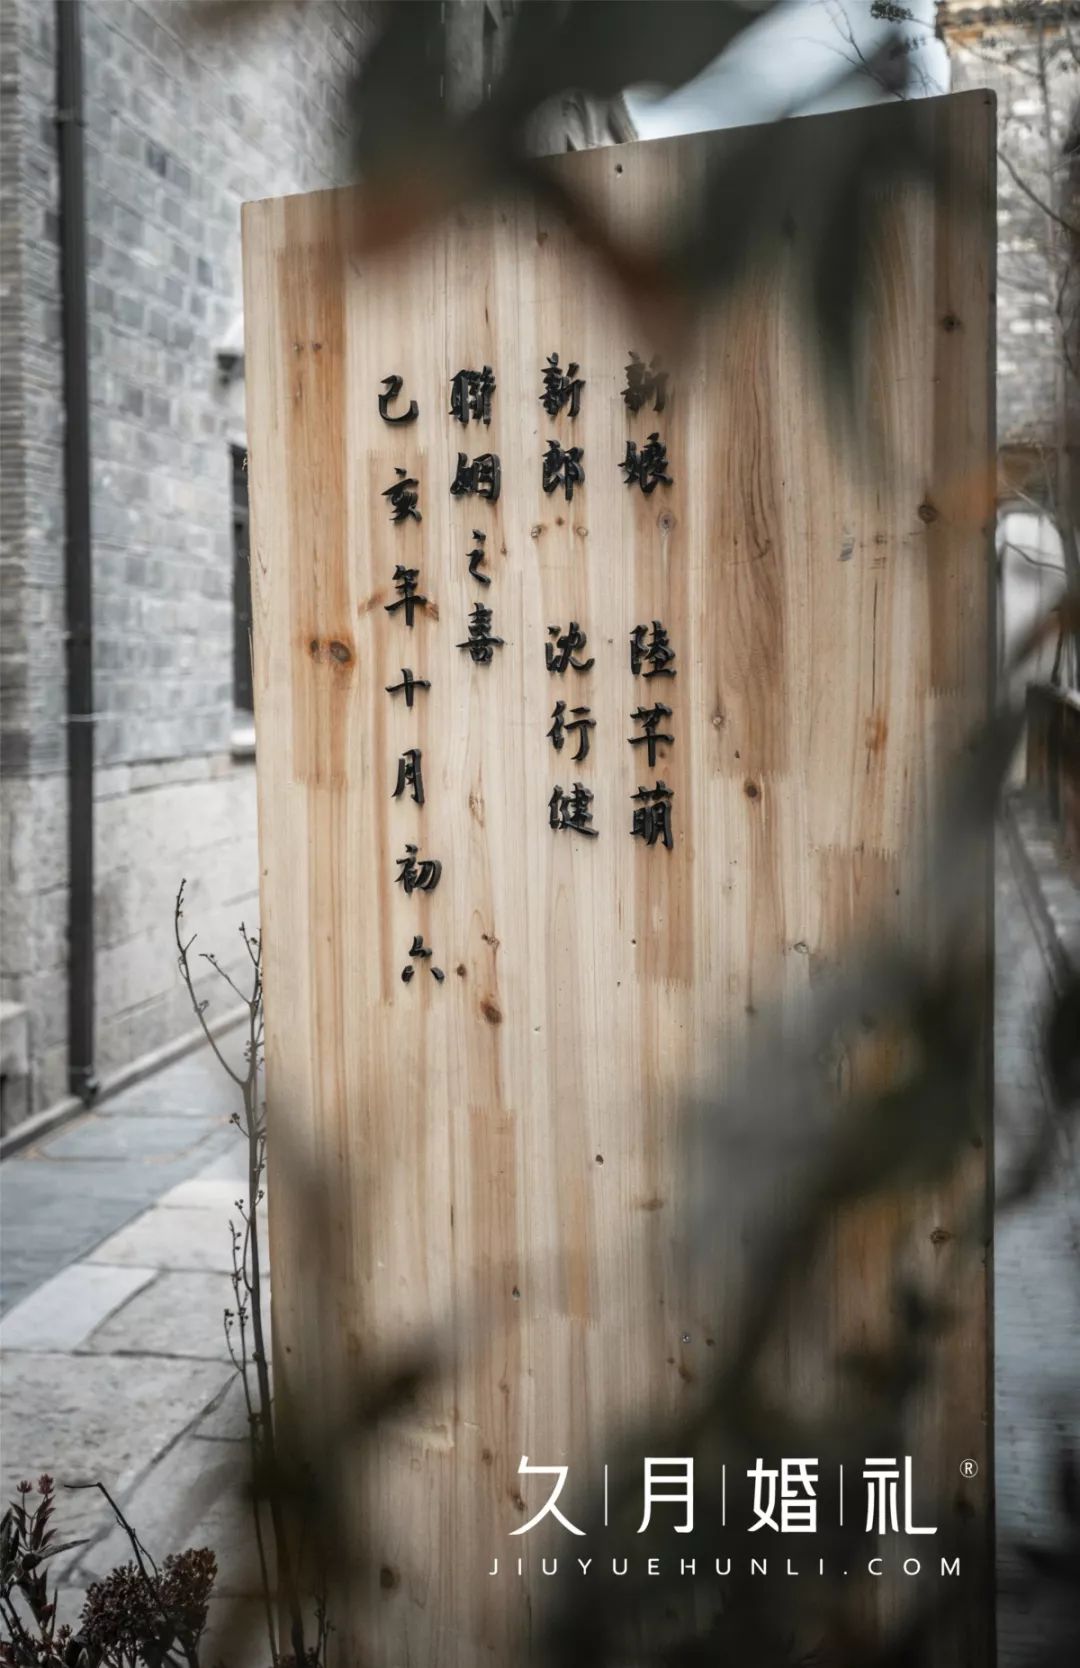 新娘 陸芊萌
新郎 沈行健
聯姻之喜
己亥年十月初六
久月婚礼®
JIUYUEHUNLI.COM